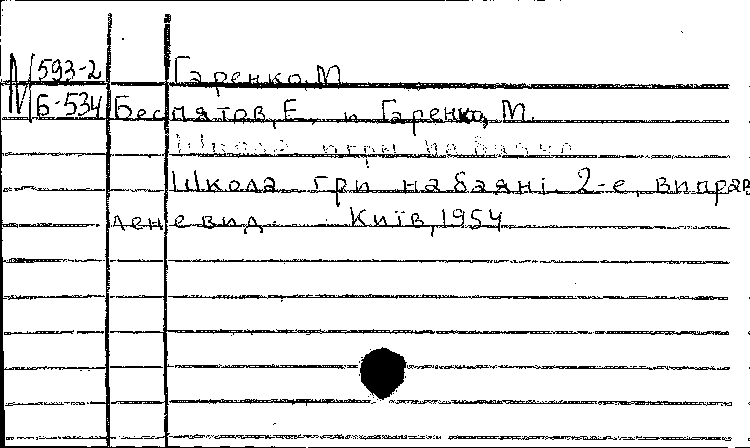 N 593-2 Гаренко, М.
Б-534 Беспятов, Е. и Гаренко, М.
Школа игры на баяні
Школа гри на баяні. 2-е, виправ
лене вид. Київ, 1954